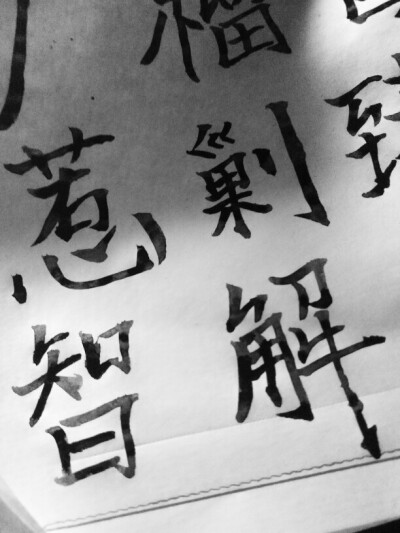 榴剿解
惹智